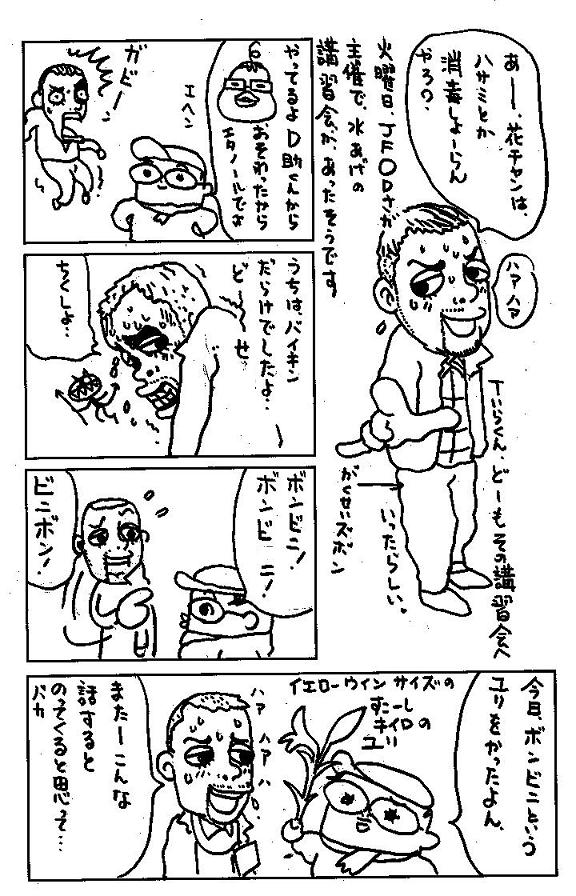 あー、花チャンは、
ハサミとか
消毒しよーらん
やろ?
火曜日、JFODさが
主催で、水あげの
講習会が、あったそうです
ハァハァ
Tいらくん、どーもその講習会へ
いったらしい。
がくせいズボン
やってるよD助くんから
おそわったから
エタノールでよ
エヘン
ガビーン
うちは、バイキン
だらけでしたよ‥
どーせ
ちくしょ‥
ボンビニ!
ボンビニ!
ビニボン!
今日、ボンビニという
ユリをかったよん
イエローウィンサイズの
すたーし
キイロの
ユリ
ハァ ハァ ハァ
またーこんな
話すると
のってくると思って…
バカ